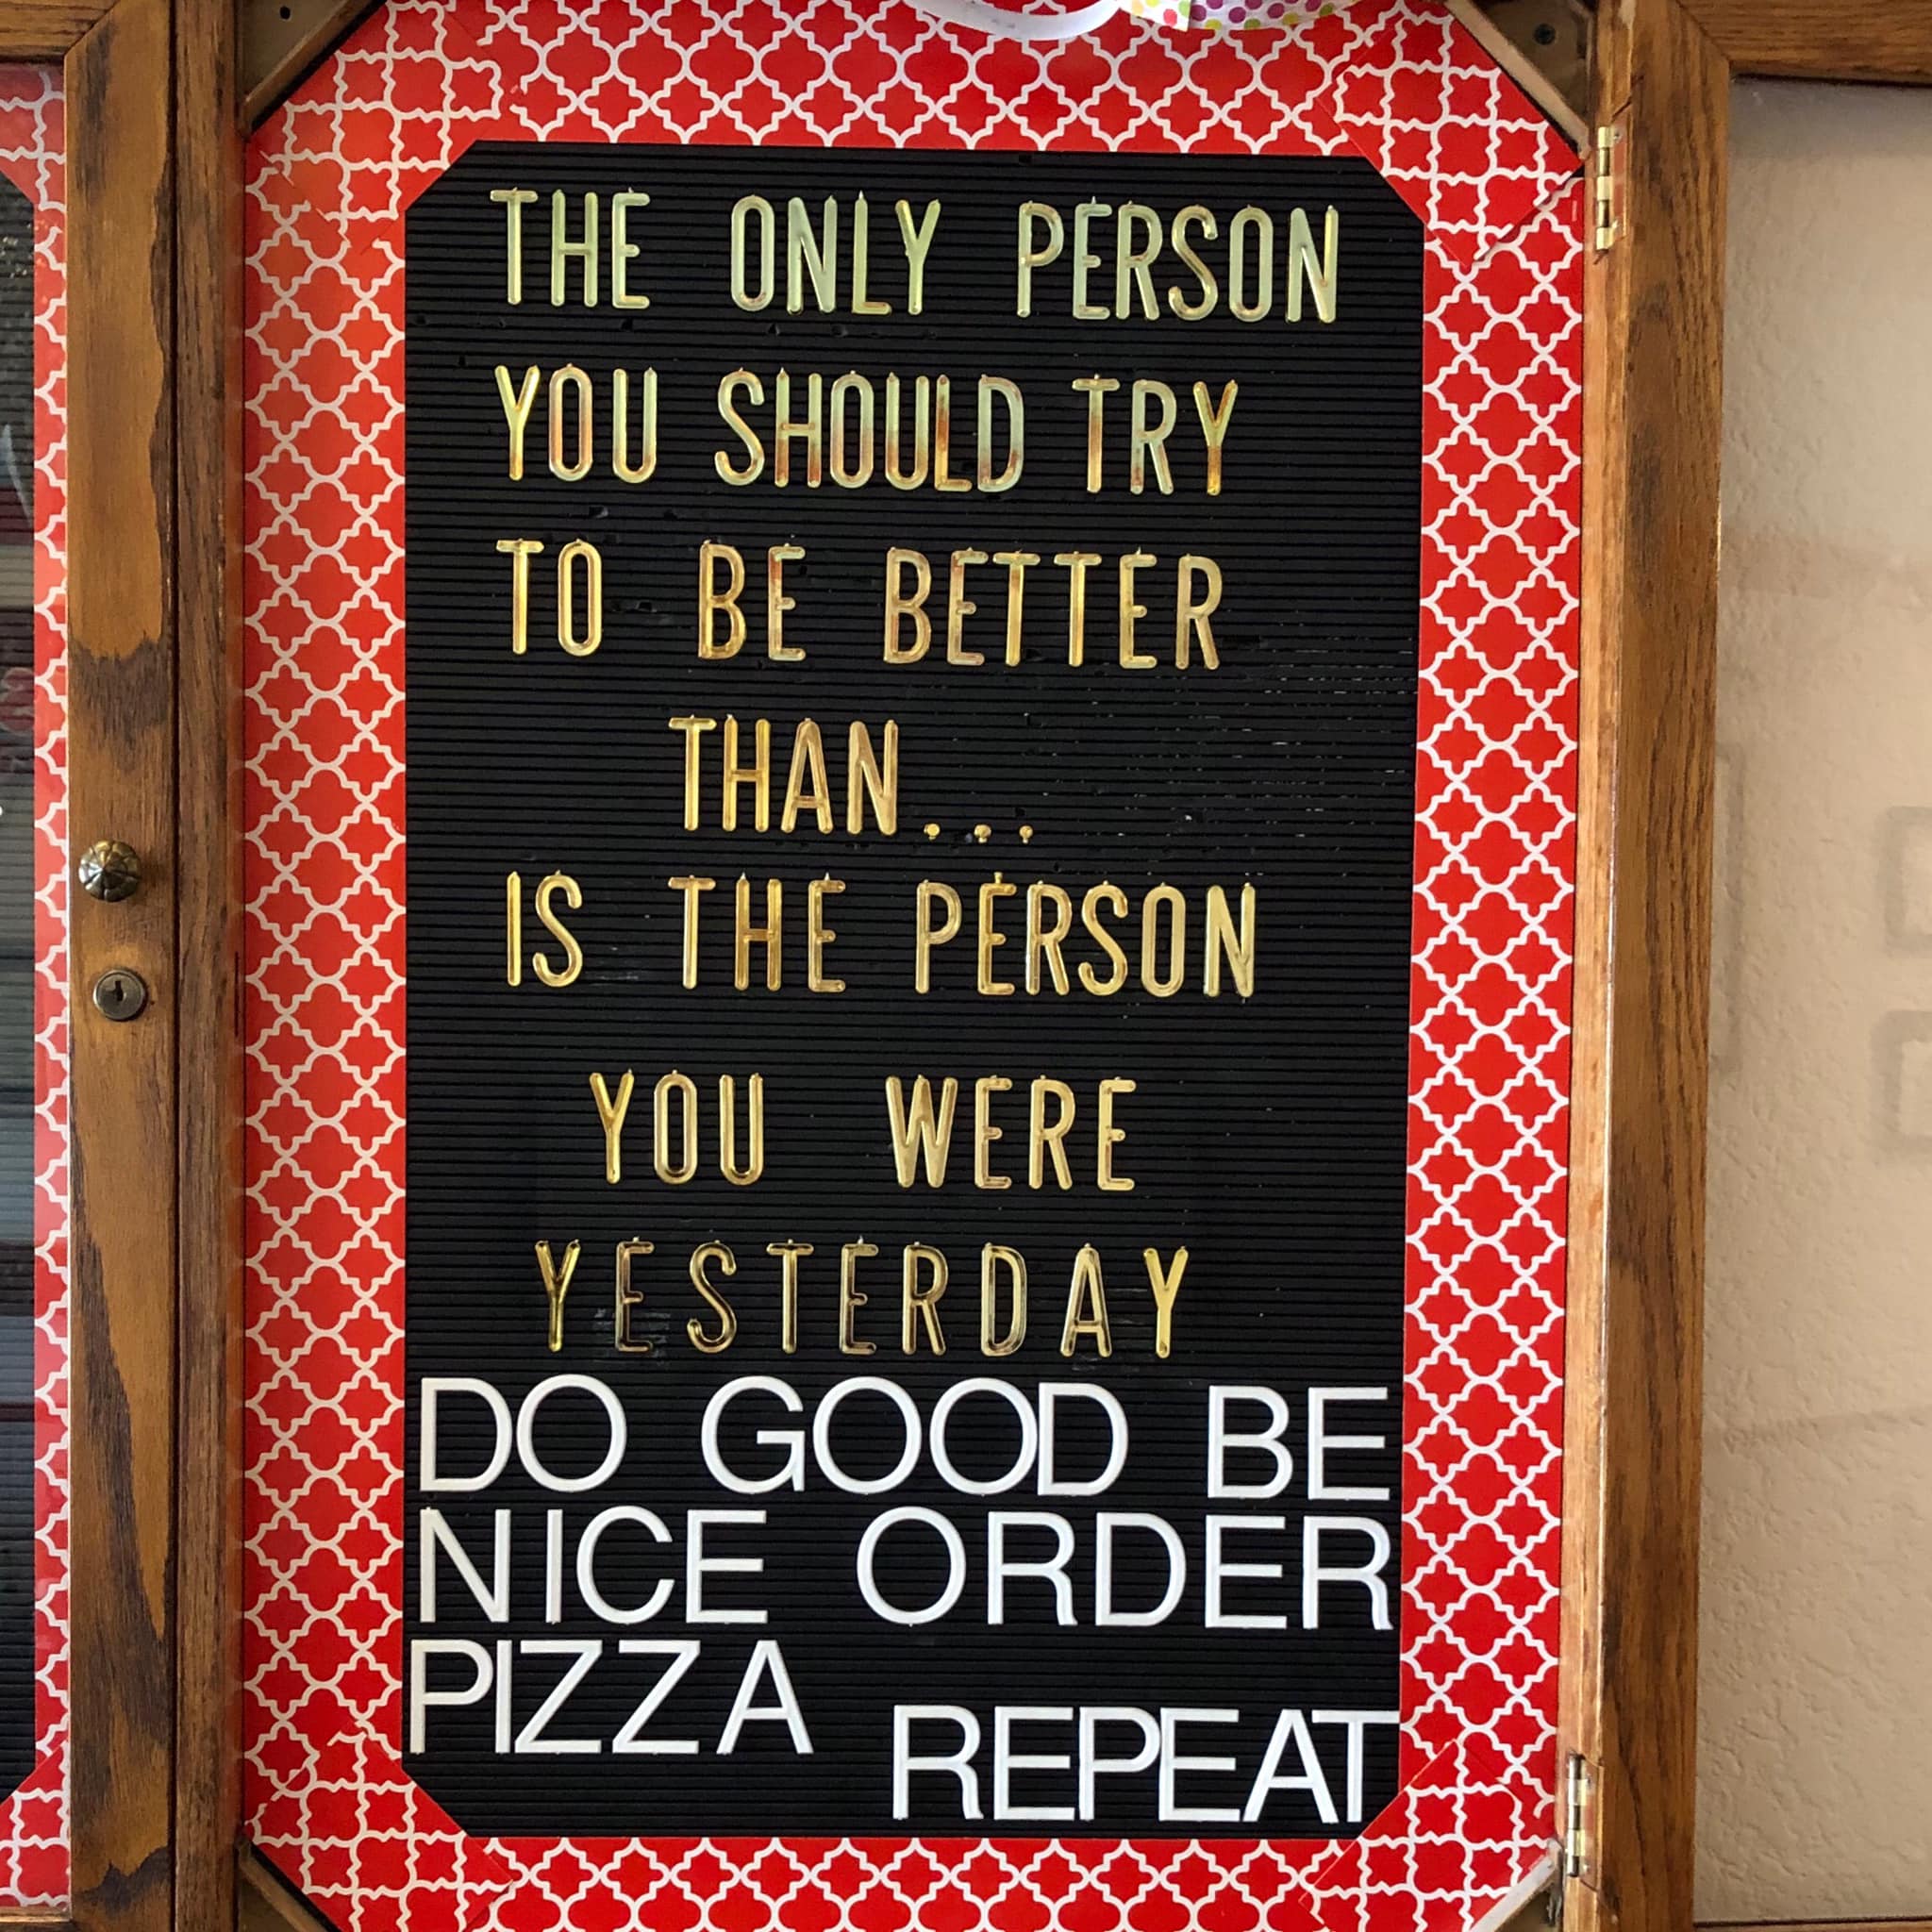 THE ONLY PERSON
YOU SHOULD TRY
TO BE BETTER
THAN...
IS THE PERSON
YOU WERE
YESTERDAY
DO GOOD BE
NICE ORDER
PIZZA REPEAT